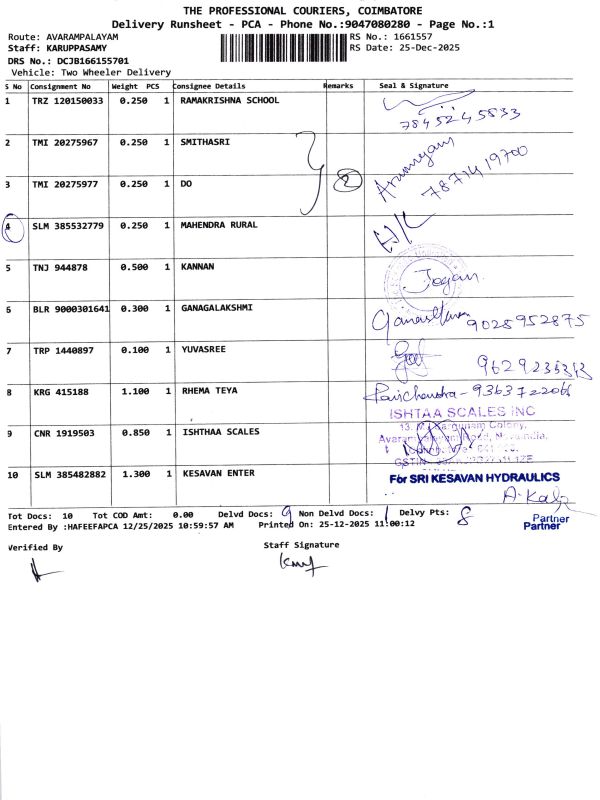 THE PROFESSIONAL COURIERS, COIMBATORE
Delivery Runsheet - PCA - Phone No.:9047080280 - Page No.:1
Route: AVARAMPALAYAM RS No.: 1661557
Staff: KARUPPASAMY RS Date: 25-Dec-2025
DRS No.: DCJB166155701
Vehicle: Two Wheeler Delivery
S No Consignment No Weight PCS Consignee Details Remarks Seal & Signature
1 TRZ 120150033 0.250 1 RAMAKRISHNA SCHOOL
7845245533
2 TMI 20275967 0.250 1 SMITHASRI
3 TMI 20275977 0.250 1 DO 2 7871419700
4 SLM 385532779 0.250 1 MAHENDRA RURAL
5 TNJ 944878 0.500 1 KANNAN Jogan
6 BLR 9000301641 0.300 1 GANAGALAKSHMI 9028952875
7 TRP 1440897 0.100 1 YUVASREE
8 KRG 415188 1.100 1 RHEMA TEYA Ravichandra - 9363722066
ISHTAA SCALES INC
9 CNR 1919503 0.850 1 ISHTHAA SCALES
10 SLM 385482882 1.300 1 KESAVAN ENTER For SRI KESAVAN HYDRAULICS
Tot Docs: 10 Tot COD Amt: 0.00 Delvd Docs: 9 Non Delvd Docs: 1 Delvy Pts: 8
Partner
Partner
Entered By :HAFEEFAPCA 12/25/2025 10:59:57 AM Printed On: 25-12-2025 11:00:12
Verified By Staff Signature